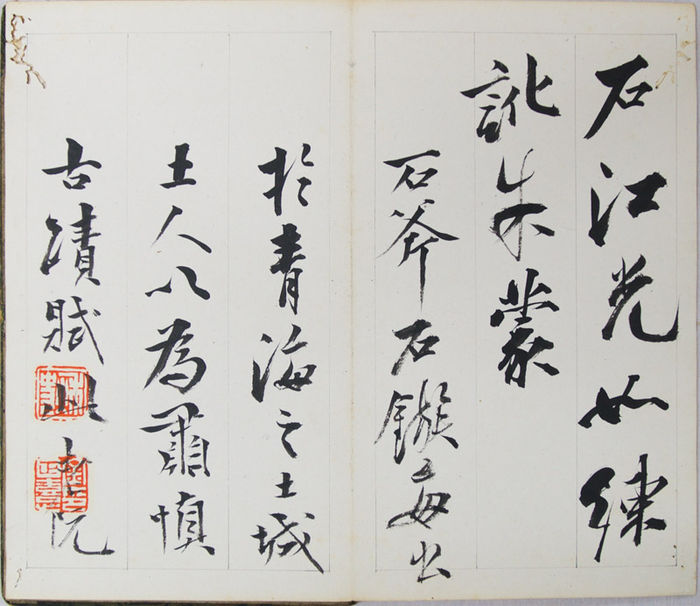 石江光如練
訛朱蒙
石斧石鏃每出
於青海之土城
土人以為肅慎
古蹟賦此 老阮